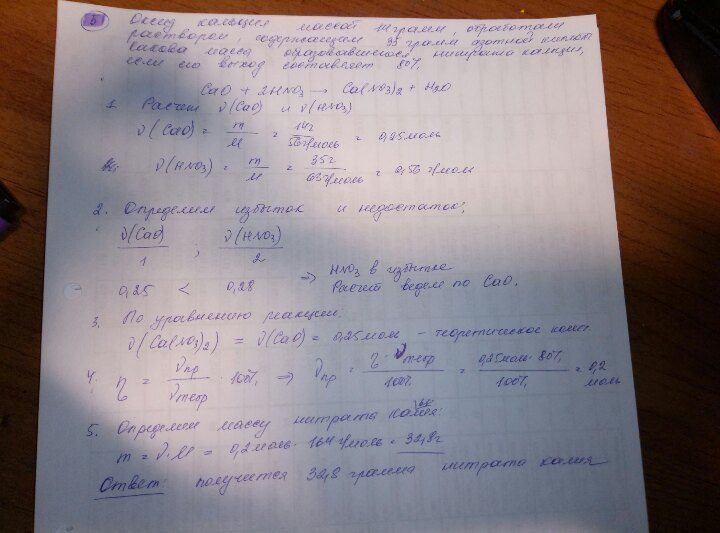 5 Оксид кальция массой 14 грамм, обработали
раствором, содержащим 35 грамм азотной кислоты
Какова масса образовавшегося нитрата кальция,
если его выход составляет 80%.
CaO + 2HNO3 → Ca(NO3)2 + H2O
1. Расчет ν(CaO) и ν(HNO3)
ν(CaO) = m/M = 14г/56г/моль = 0,25 моль
ν(HNO3) = m/M = 35г/63г/моль = 0,56 г/моль
2. Определим избыток и недостаток:
ν(CaO)/1 ; ν(HNO3)/2
0,25 < 0,28 ⇒ HNO3 в избытке
Расчет ведем по CaO.
3. По уравнению реакции:
ν(Ca(NO3)2) = ν(CaO) = 0,25 моль - теоретическое колич
4. η = νпр/νтеор · 100% ⇒ νпр = η · νтеор/100% = 0,25 моль · 80%/100% = 0,2 моль
5. Определим массу нитрата
m = ν · M = 0,2 моль · 164 г/моль = 32,8г
Ответ: получится 32,8 грамма нитрата калия